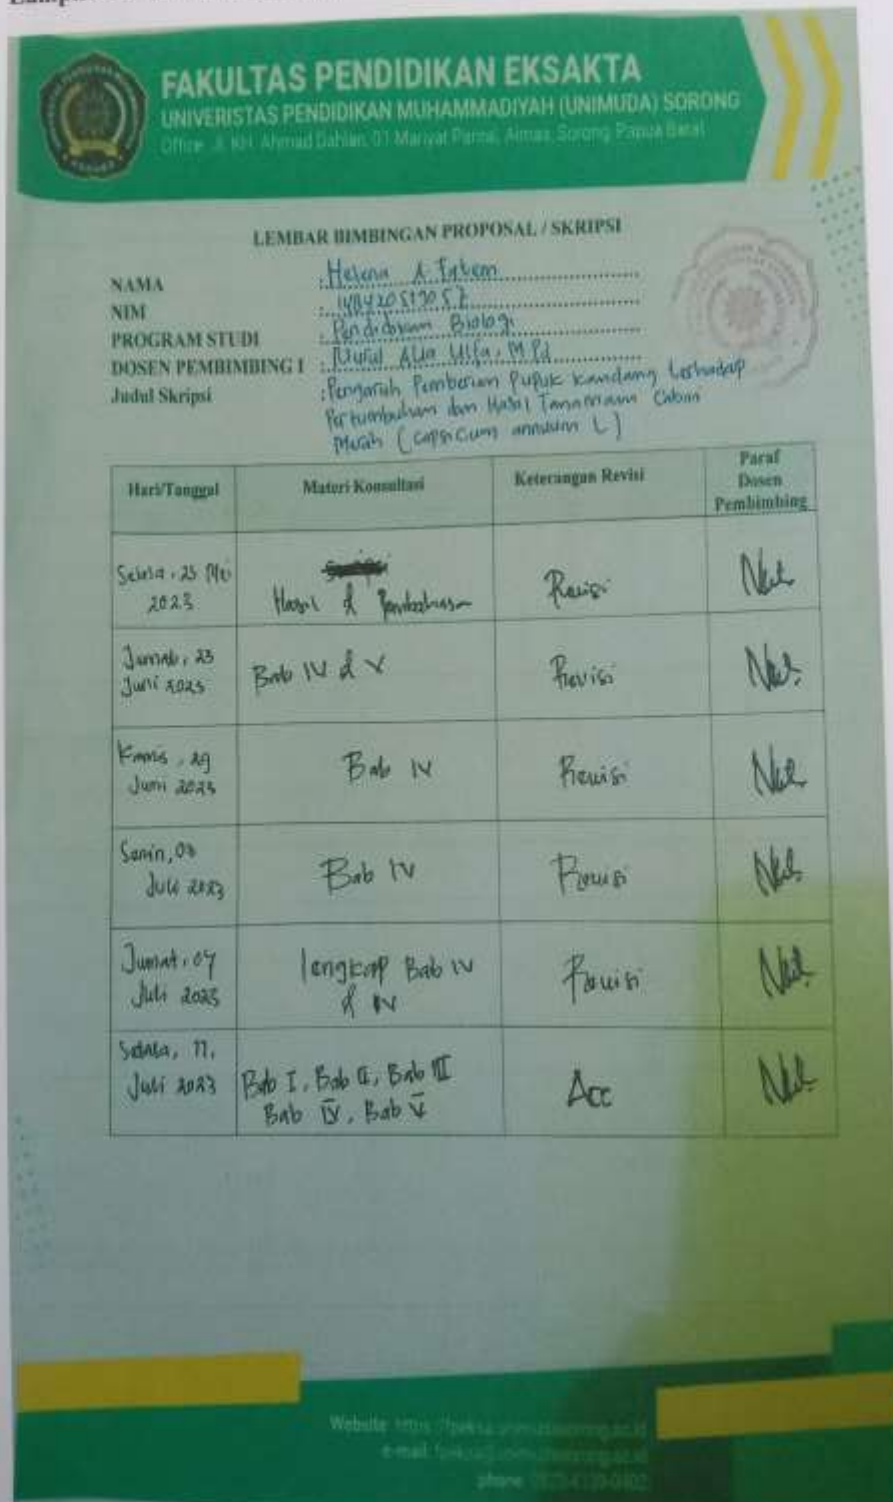 FAKULTAS PENDIDIKAN EKSAKTA
UNIVERISTAS PENDIDIKAN MUHAMMADIYAH (UNIMUDA) SORONG
Office : Jl. KH. Ahmad Dahlan, 01 Mariyat Pantai, Aimas, Sorong, Papua Barat
LEMBAR BIMBINGAN PROPOSAL / SKRIPSI
NAMA : Helena A
NIM
PROGRAM STUDI : Pendidikan Biologi
DOSEN PEMBIMBING I : Nurul Alia Ulfa, M.Pd
Judul Skripsi : Pengaruh Pemberian Pupuk Kandang terhadap
Pertumbuhan dan Hasil Tanamam Cabai
Merah (Capsicum annuum L)
Hari/Tanggal Materi Konsultasi Keterangan Revisi Paraf
Dosen
Pembimbing
Selasa, 25 Mei
2023 Hasil & Pembahasan Revisi
Jumat, 23
Juni 2023 Bab IV & V Revisi
Kamis, 29
Juni 2023 Bab IV Revisi
Senin, 03
Juli 2023 Bab IV Revisi
Jumat, 07
Juli 2023 lengkap Bab IV
& IV Revisi
Selasa, 11,
Juli 2023 Bab I, Bab II, Bab III
Bab IV, Bab V Acc
Website:
e-mail:
phone: